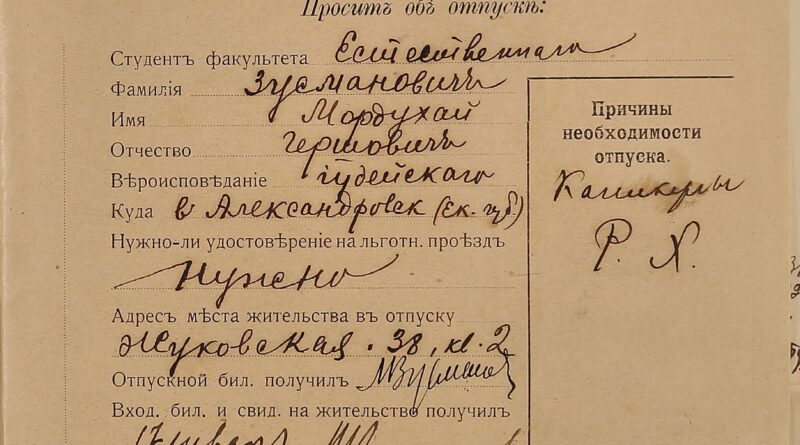 Проситъ объ отпускѣ:
Студентъ факультета Естественнаго
Фамилія Зусмановичъ
Имя Мордухай
Отчество Гершовичъ
Вѣроисповѣданіе Іудейскаго
Куда в Александровск (Ек. губ)
Нужно-ли удостовѣреніе на льготн. проѣздъ
Нужно
Адресъ мѣста жительства въ отпуску
Жуковская. 38, кв. 2
Отпускной бил. получилъ
Вход. бил. и свид. на жительство получилъ
Причины
необходимости
отпуска.
Каникулы
Р. Х.